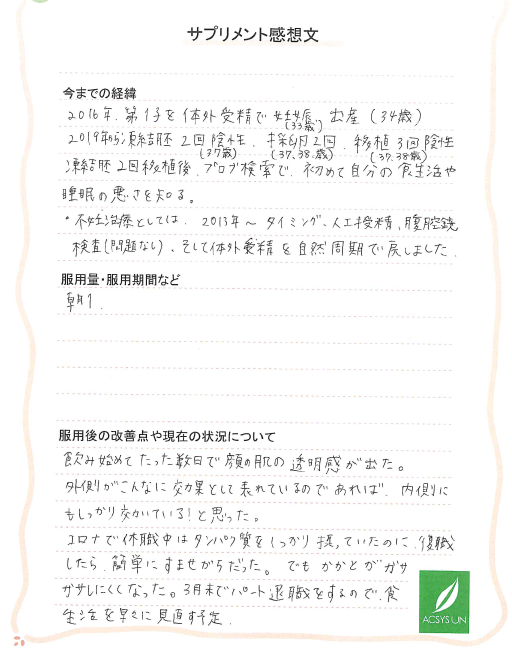 サプリメント感想文
今までの経緯
2016年.第1子を体外受精で妊娠、出産(34歳)
(33歳)
2019年から凍結胚 2回陰性、採卵2回、移植3回陰性
(37歳) (37.38.歳) (37.38歳)
凍結胚2回移植後、ブログ検索で、初めて自分の食生活や
睡眠の悪さを知る。
・不妊治療としては、2013年〜タイミング、人工授精、腹腔鏡
検査(問題なし)、そして体外受精を自然周期で戻しました.
服用量・服用期間など
朝1.
服用後の改善点や現在の状況について
飲み始めてたった数日で顔の肌の透明感が出た。
外側がこんなに効果として表れているのであれば、内側に
もしっかり効いている!と思った。
コロナで休職中はタンパク質をしっかり摂っていたのに、復職
したら、簡単にすませがちだった。でもかかとがガサ
ガサしにくくなった。3月末でパート退職をするので、食
生活を早くに見直す予定.
ACSYS UN